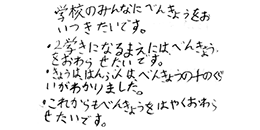 学校のみんなにべんきょうをお
いつきたいです。
・2学きになるまえにはべんきょう
をおわらせたいです。
・きょうははんら人はべんきょうの十のぐ
いがわかりました。
・これからもべんきょうをはやくおわら
せたいです。